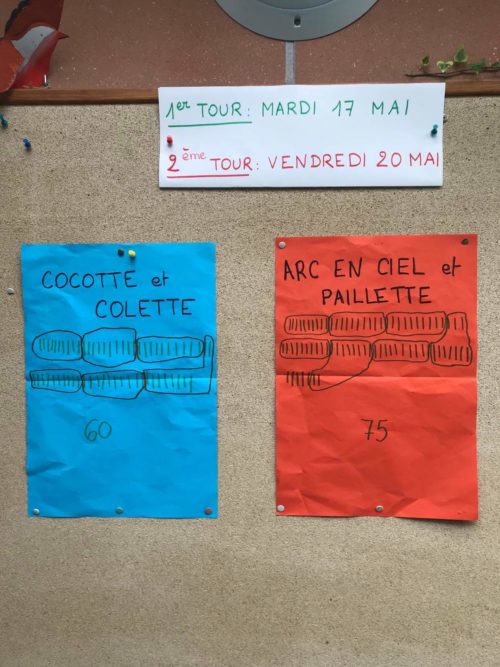 1er TOUR: MARDI 17 MAI
2ème TOUR: VENDREDI 20 MAI
COCOTTE et
COLETTE
60
ARC EN CIEL et
PAILLETTE
75